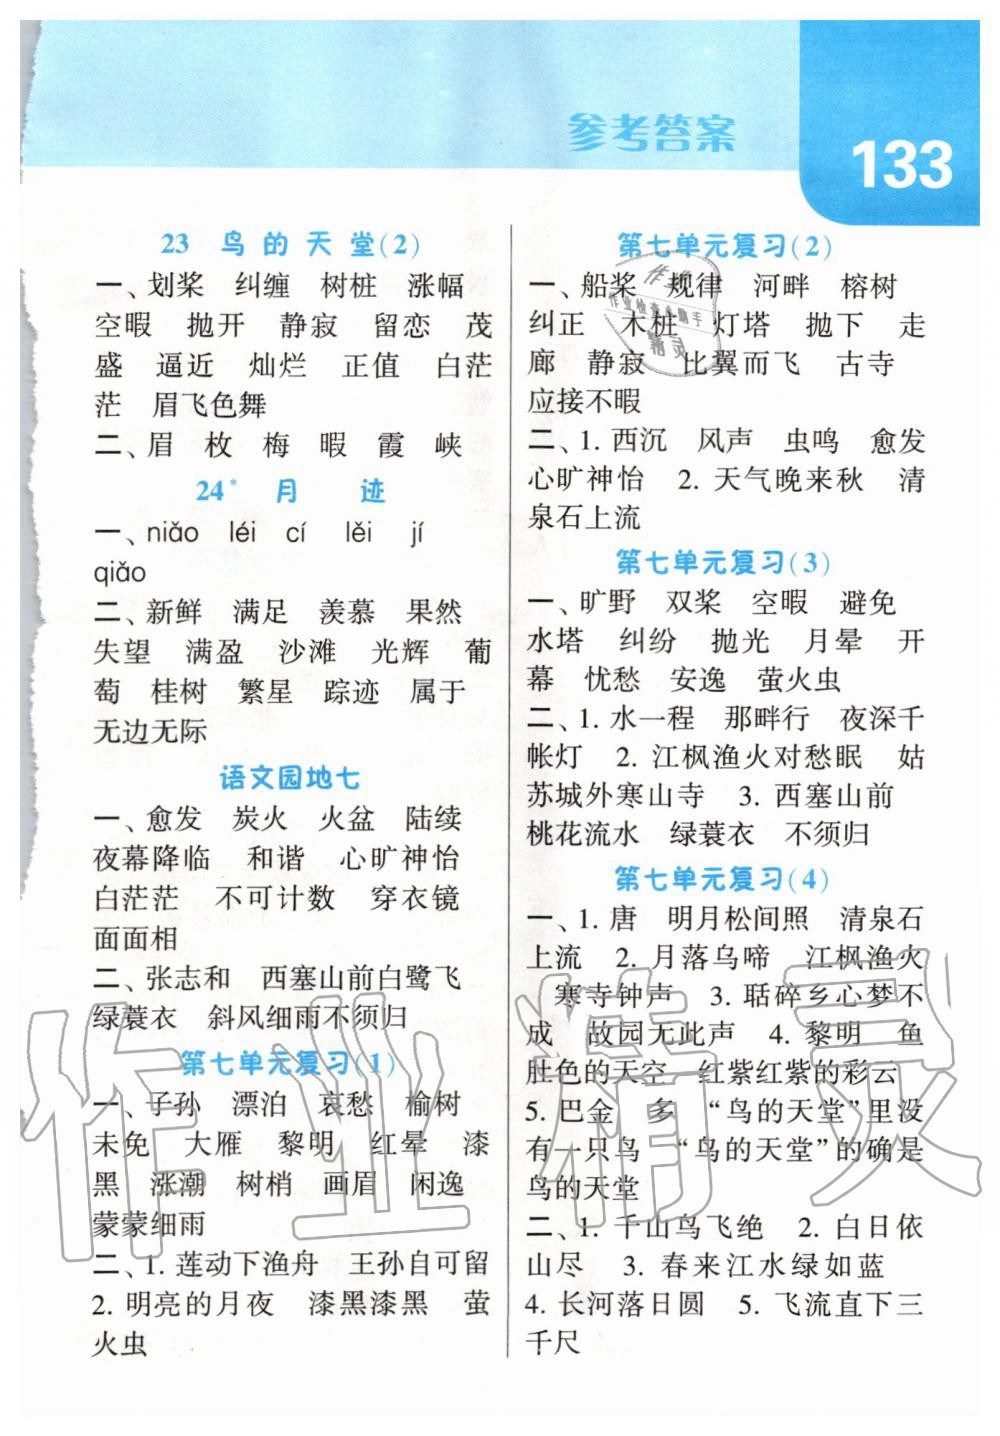 参考答案
133
23 鸟的天堂(2)
一、划桨 纠缠 树桩 涨幅
空暇 抛开 静寂 留恋 茂
盛 逼近 灿烂 正值 白茫
茫 眉飞色舞
二、眉 枚 梅 暇 霞 峡
24* 月迹
一、niǎo léi cí lěi jí
qiǎo
二、新鲜 满足 羡慕 果然
失望 满盈 沙滩 光辉 葡
萄 桂树 繁星 踪迹 属于
无边无际
语文园地七
一、愈发 炭火 火盆 陆续
夜幕降临 和谐 心旷神怡
白茫茫 不可计数 穿衣镜
面面相
二、张志和 西塞山前白鹭飞
绿蓑衣 斜风细雨不须归
第七单元复习(1)
一、子孙 漂泊 哀愁 榆树
未免 大雁 黎明 红晕 漆
黑 涨潮 树梢 画眉 闲逸
蒙蒙细雨
二、1. 莲动下渔舟 王孙自可留
2. 明亮的月夜 漆黑漆黑 萤
火虫
第七单元复习(2)
一、船桨 规律 河畔 榕树
纠正 木桩 灯塔 抛下 走
廊 静寂 比翼而飞 古寺
应接不暇
二、1. 西沉 风声 虫鸣 愈发
心旷神怡 2. 天气晚来秋 清
泉石上流
第七单元复习(3)
一、旷野 双桨 空暇 避免
水塔 纠纷 抛光 月晕 开
幕 忧愁 安逸 萤火虫
二、1. 水一程 那畔行 夜深千
帐灯 2. 江枫渔火对愁眠 姑
苏城外寒山寺 3. 西塞山前
桃花流水 绿蓑衣 不须归
第七单元复习(4)
一、1. 唐 明月松间照 清泉石
上流 2. 月落乌啼 江枫渔火
寒寺钟声 3. 聒碎乡心梦不
成 故园无此声 4. 黎明 鱼
肚色的天空 红紫红紫的彩云
5. 巴金 多 “鸟的天堂”里没
有一只鸟 “鸟的天堂”的确是
鸟的天堂
二、1. 千山鸟飞绝 2. 白日依
山尽 3. 春来江水绿如蓝
4. 长河落日圆 5. 飞流直下三
千尺
作业精灵
作业检查小助手
精灵